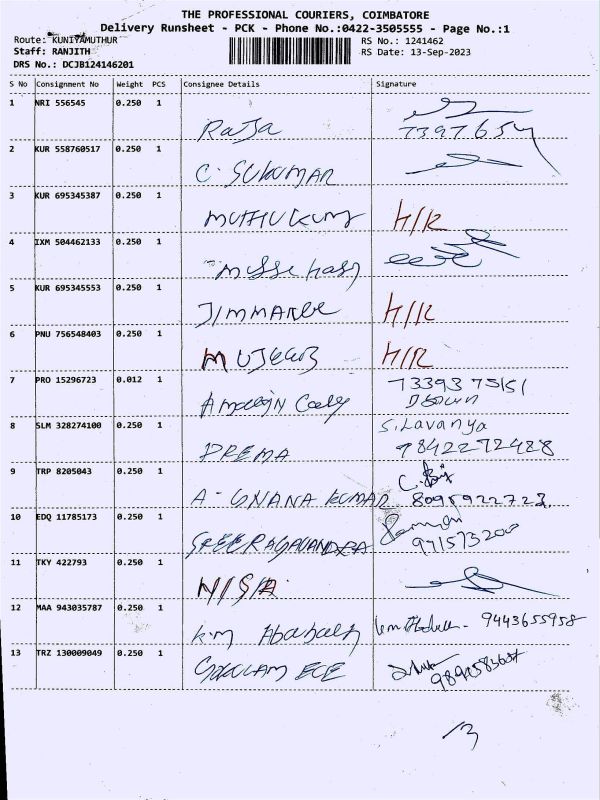 THE PROFESSIONAL COURIERS, COIMBATORE
Delivery Runsheet - PCK - Phone No.:0422-3505555 - Page No.:1
Route: KUNIYAMUTHUR RS No.: 1241462
Staff: RANJITH RS Date: 13-Sep-2023
DRS No.: DCJB124146201
S No Consignment No Weight PCS Consignee Details Signature
1 NRI 556545 0.250 1
Raja
2 KUR 558760517 0.250 1
C. SUKUMAR
3 KUR 695345387 0.250 1
MUTHUKUMR H/R
4 IXM 504462133 0.250 1
5 KUR 695345553 0.250 1
H/R
6 PNU 756548403 0.250 1
MUJEEB H/R
7 PRO 15296723 0.012 1
8 SLM 328274100 0.250 1 S. Lavanya
PREMA 9842272488
9 TRP 8205043 0.250 1
A - GNANA KUMAR 8095922723
10 EDQ 11785173 0.250 1
SREERAGAVANDRA
11 TKY 422793 0.250 1
12 MAA 943035787 0.250 1
K.M 9443655958
13 TRZ 130009049 0.250 1
13